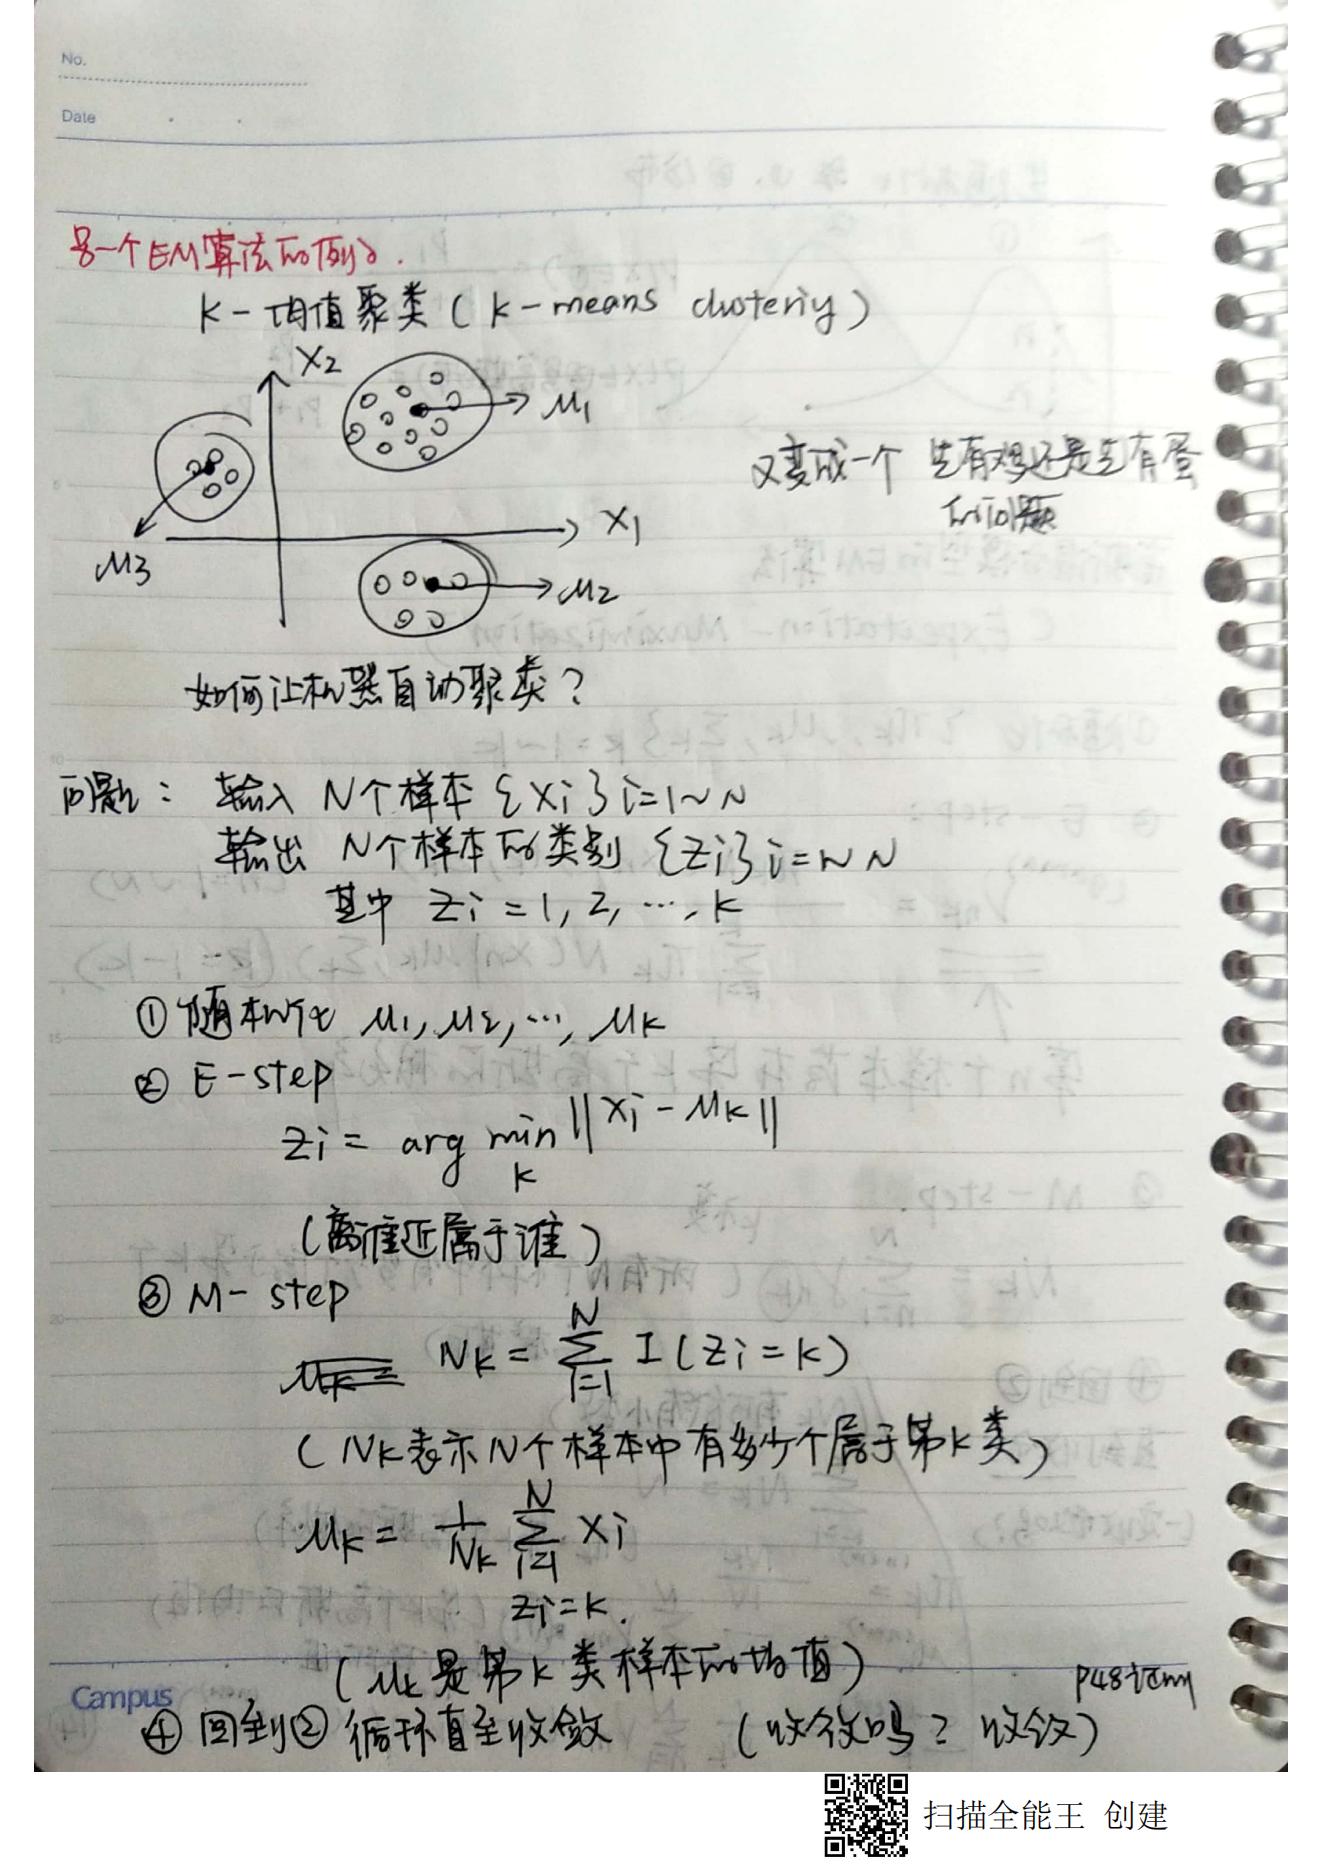 No.
Date
另一个EM算法的例子.
K-均值聚类(K-means clustering)
X2
μ1
又变成一个 先有鸡还是先有蛋
的问题
X1
μ3
μ2
如何让机器自动聚类?
问题: 输入 N个样本 {Xi} i=1~N
输出 N个样本的类别 {Zi} i=~N
其中 Zi = 1, 2, ..., K
① 随机化 μ1, μ2, ..., μK
② E-step
Zi = arg min ||Xi - μK||
K
(离谁近属于谁)
③ M-step
NK = Σ_{i=1}^{N} I(Zi=K)
(NK表示N个样本中有多少个属于第K类)
μK = 1/NK Σ_{i=1}^{N} Xi
Zi=K.
(μK是第K类样本的均值)
P48证明
Campus
④ 回到② 循环直至收敛 (收敛吗? 收敛)
扫描全能王 创建